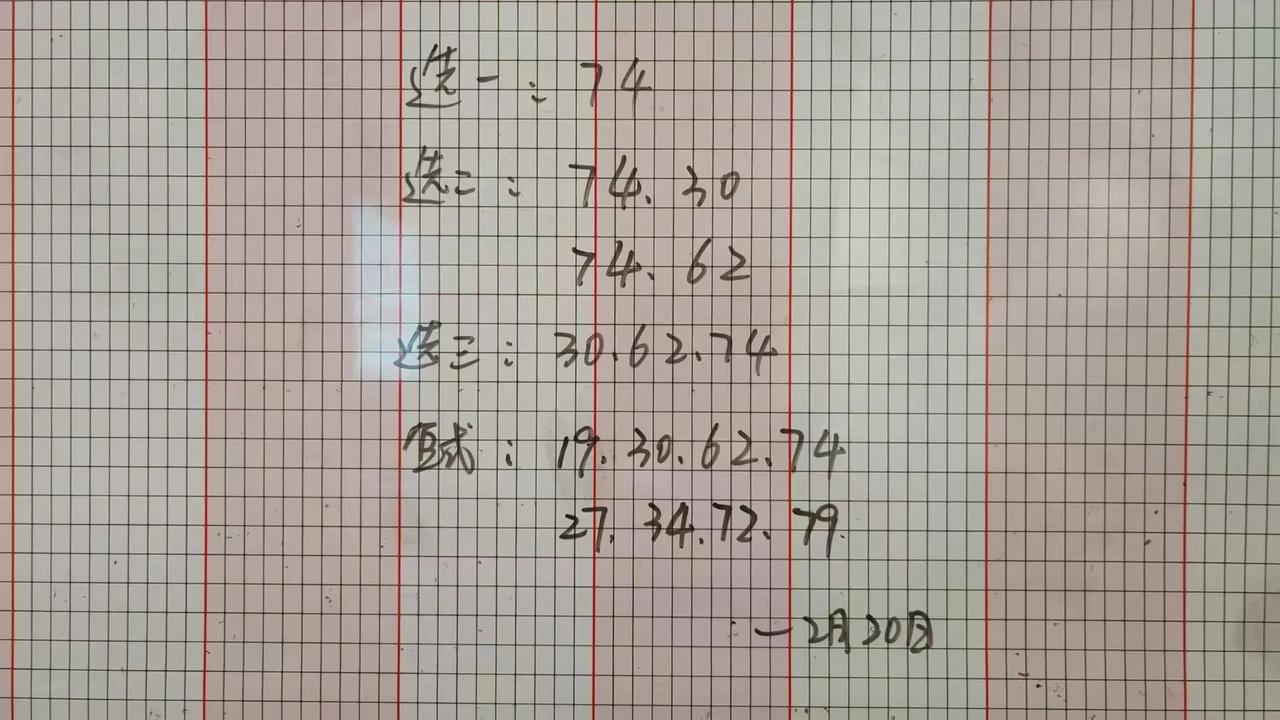 选一：74
选二：74.30
74.62
选三：30.62.74
直式：19.30.62.74
27.34.72.79.
—2月20日